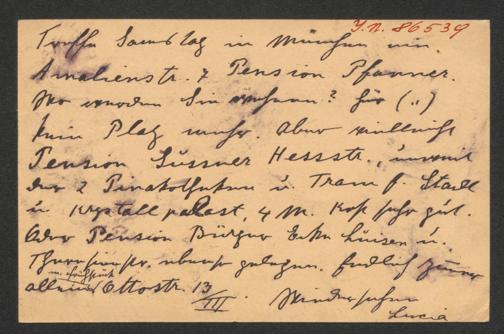 J.N. 86539
Treffe Samstag in München ein.
Amalienstr. 7 Pension Pfanner.
Wo werden Sie wohnen? Hier („)
kein Platz mehr. Aber vielleicht
Pension Süssner Hessstr., unweit
der 2 Pinakotheken u. Tram f. Stadt
u. Krystallpalast, 4 M. Kost sehr gut.
Oder Pension Bürger Ecke Luisen u.
Theresienstr. ebenso gelegen. Endlich
m. Frühstück
allein Ottostr. 13/III Wiedersehen
Lucia